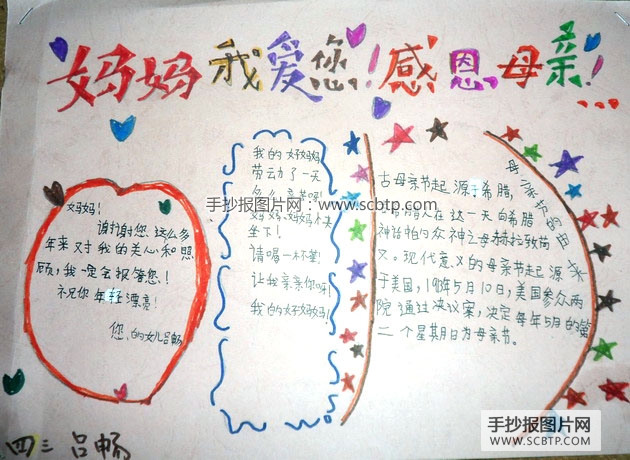 妈妈我爱您!感恩母亲!...
妈妈!
谢谢您这么多
年来对我的关心和照
顾,我一定会报答您!
祝你年轻漂亮!
您的女儿吕畅
我的好妈妈
劳动了一天
妈妈,妈妈快
坐下!
请喝一杯茶!
让我亲亲你呀!
我的好妈妈!
母亲节的由来
古母亲节起源于希腊,
人在这一天向希腊
神话的众神之母赫拉致
义。现代意义的母亲节起源
于美国,5月10日,美国参众两
院通过决议案,决定每年5月的第
二个星期日为母亲节。
四三 吕畅
手抄报图片网:www.scbtp.com
手抄报图片网
WWW.SCBTP.COM